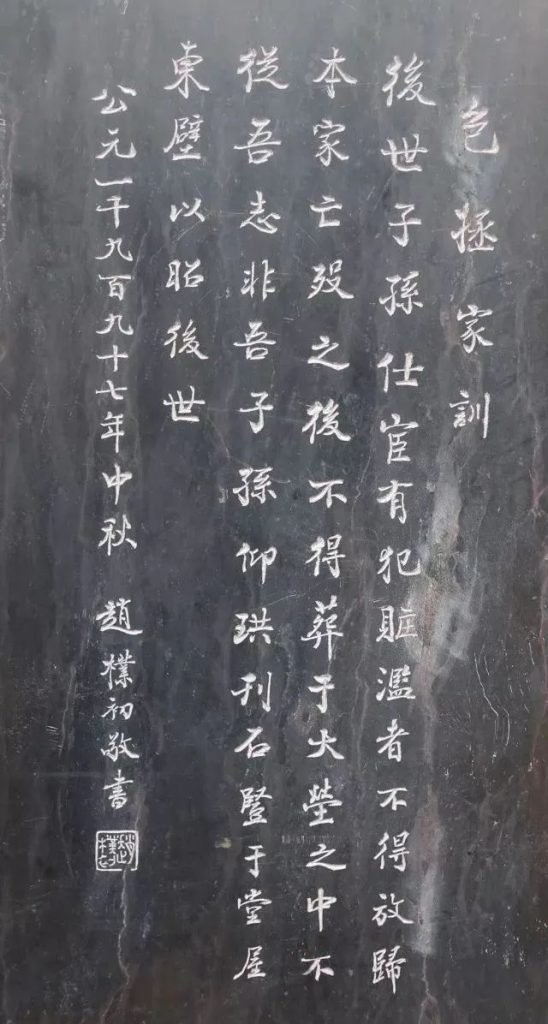 包拯家訓
後世子孫仕宦有犯賍濫者不得放歸
本家亡殁之後不得葬于大塋之中不
從吾志非吾子孫仰珙刊石竪于堂屋
東壁以昭後世
公元一千九百九十七年中秋 趙樸初敬書